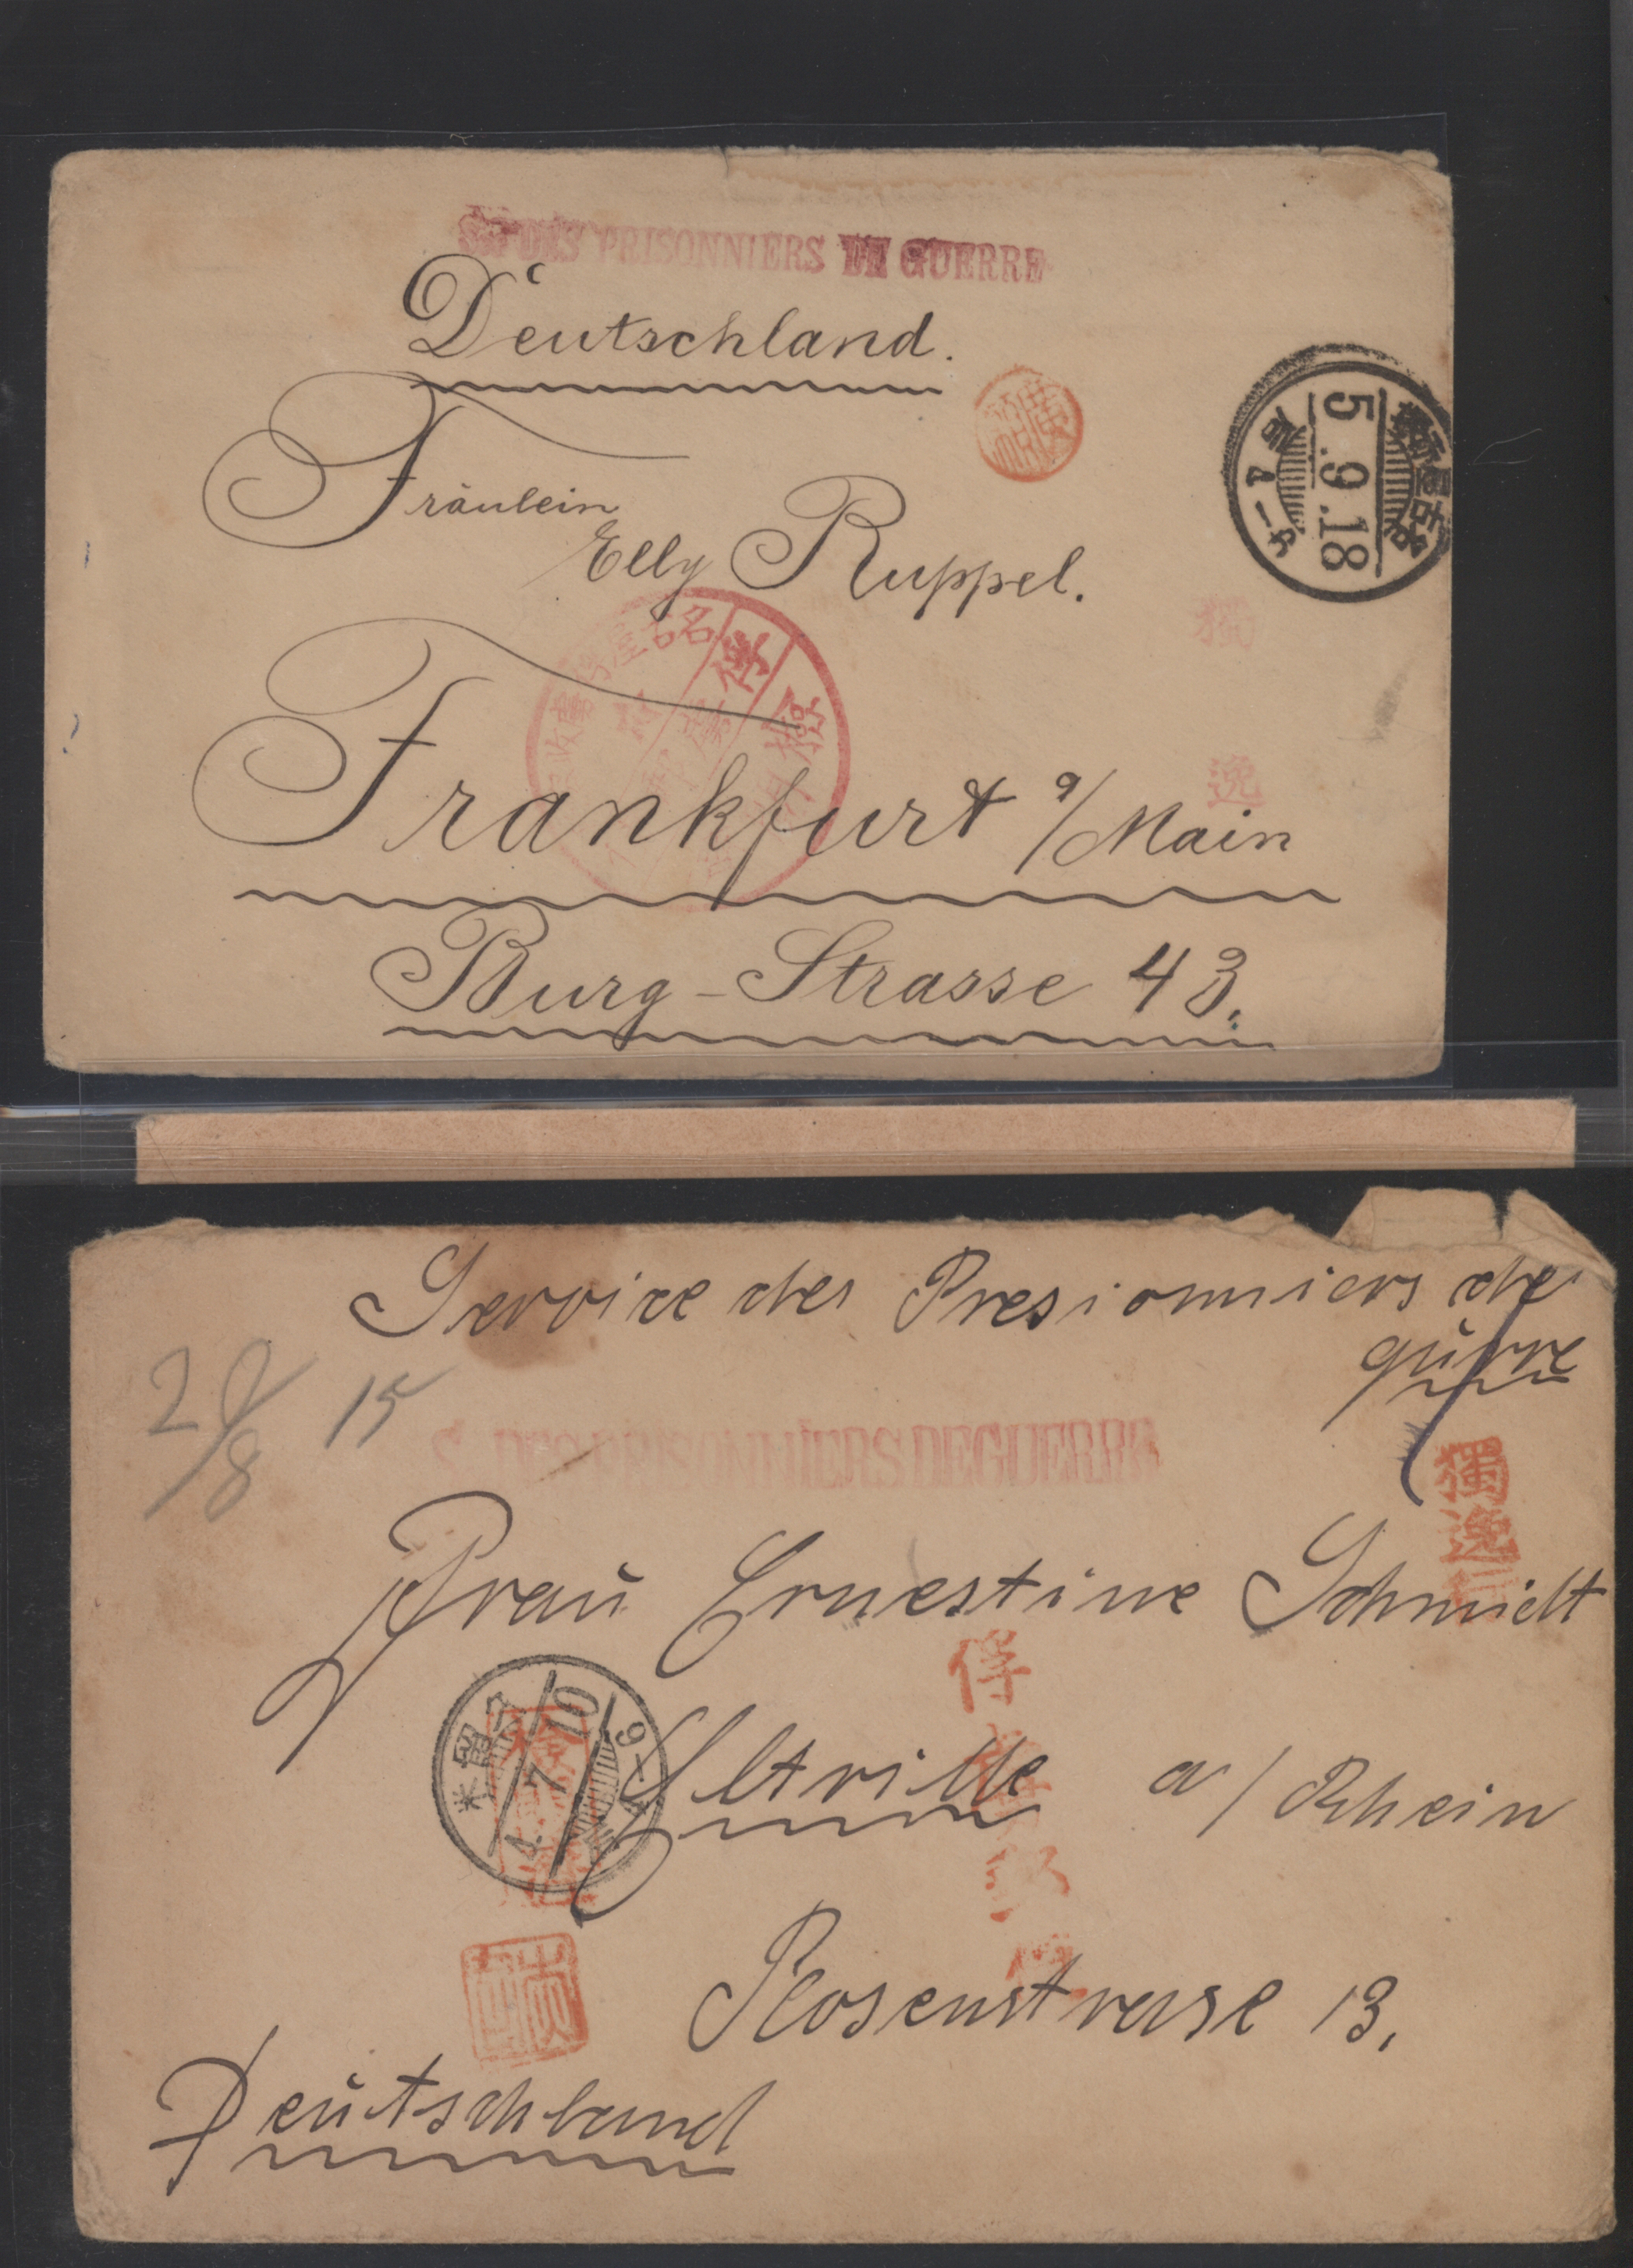 S. DES PRISONNIERS DE GUERRE
Deutschland.
Fräulein
Elly Ruppel.
名古屋
5.9.18
獨
逸
Frankfurt a/Main
Burg-Strasse 43.
Service des Presionniers de
gürre
20/8 15
S. DES PRISONNIERS DE GUERRE
獨逸
Frau Ernestine Schmidt
俘
久留米
4.7.10
Eltville a/Rhein
Rosenstrasse 13.
Deutschland